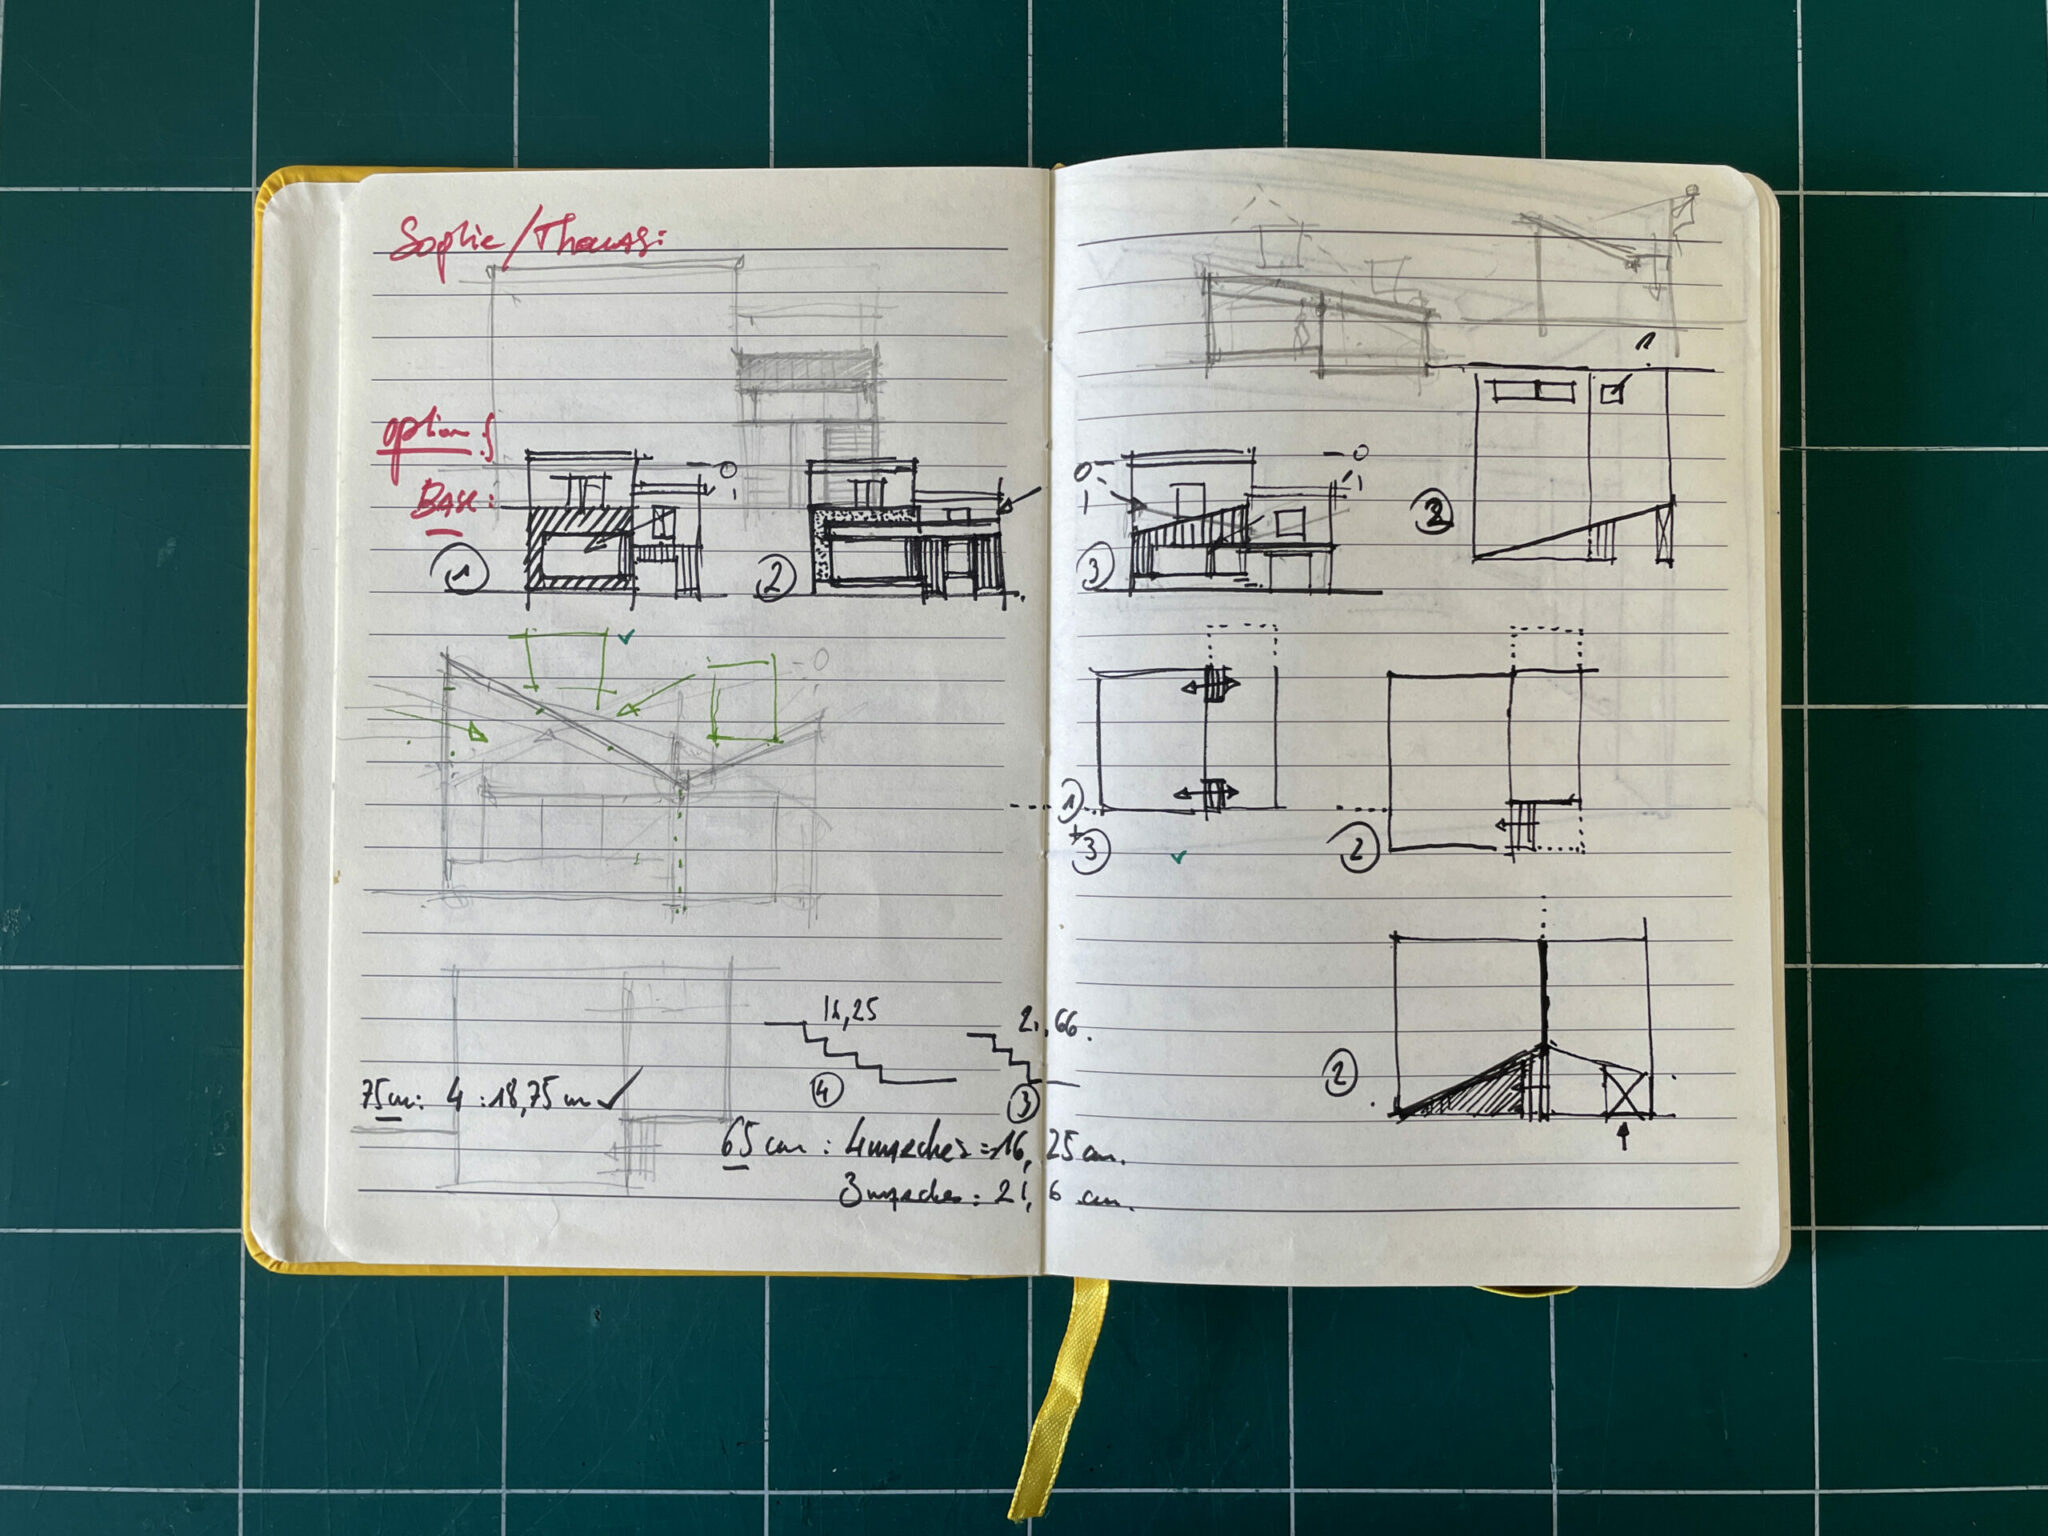 Sophie/Thomas:
options
BASE:
1
2
3
2
1
+
3
2
2
16,25
4
21,66.
3
75cm: 4 : 18,75 cm ✓
65 cm : 4 marches = 16,25 cm.
3 marches : 21,6 cm.